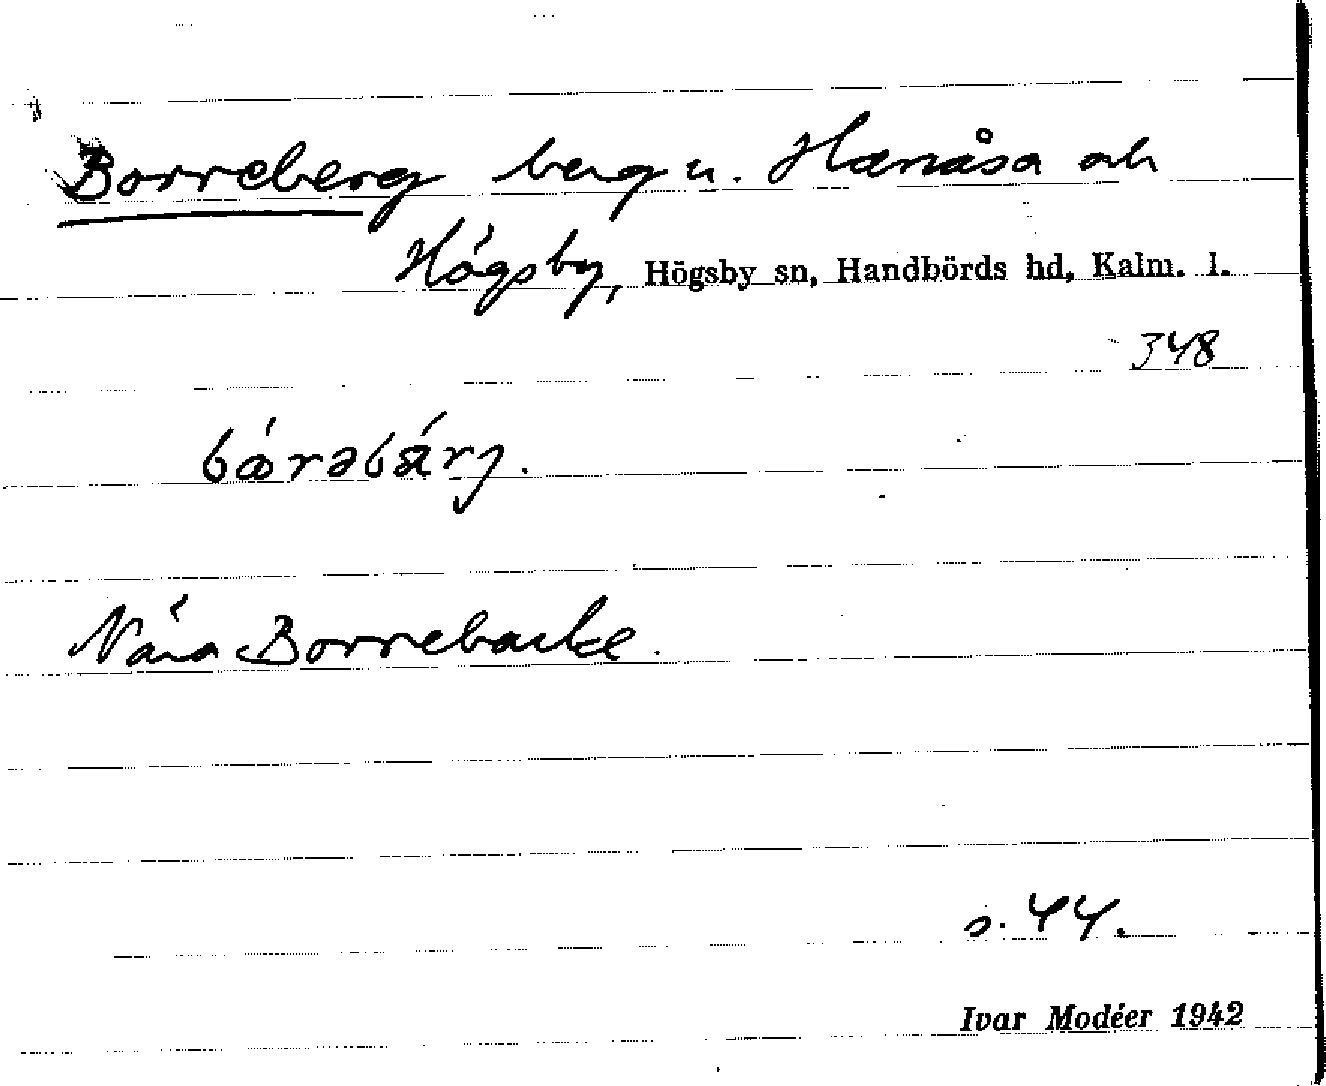 Borreberg berg u. Hanåsa och
Högsby, Högsby sn, Handbörds hd, Kalm. l.
348
Nära Borrebacke.
s. 44.
Ivar Modéer 1942